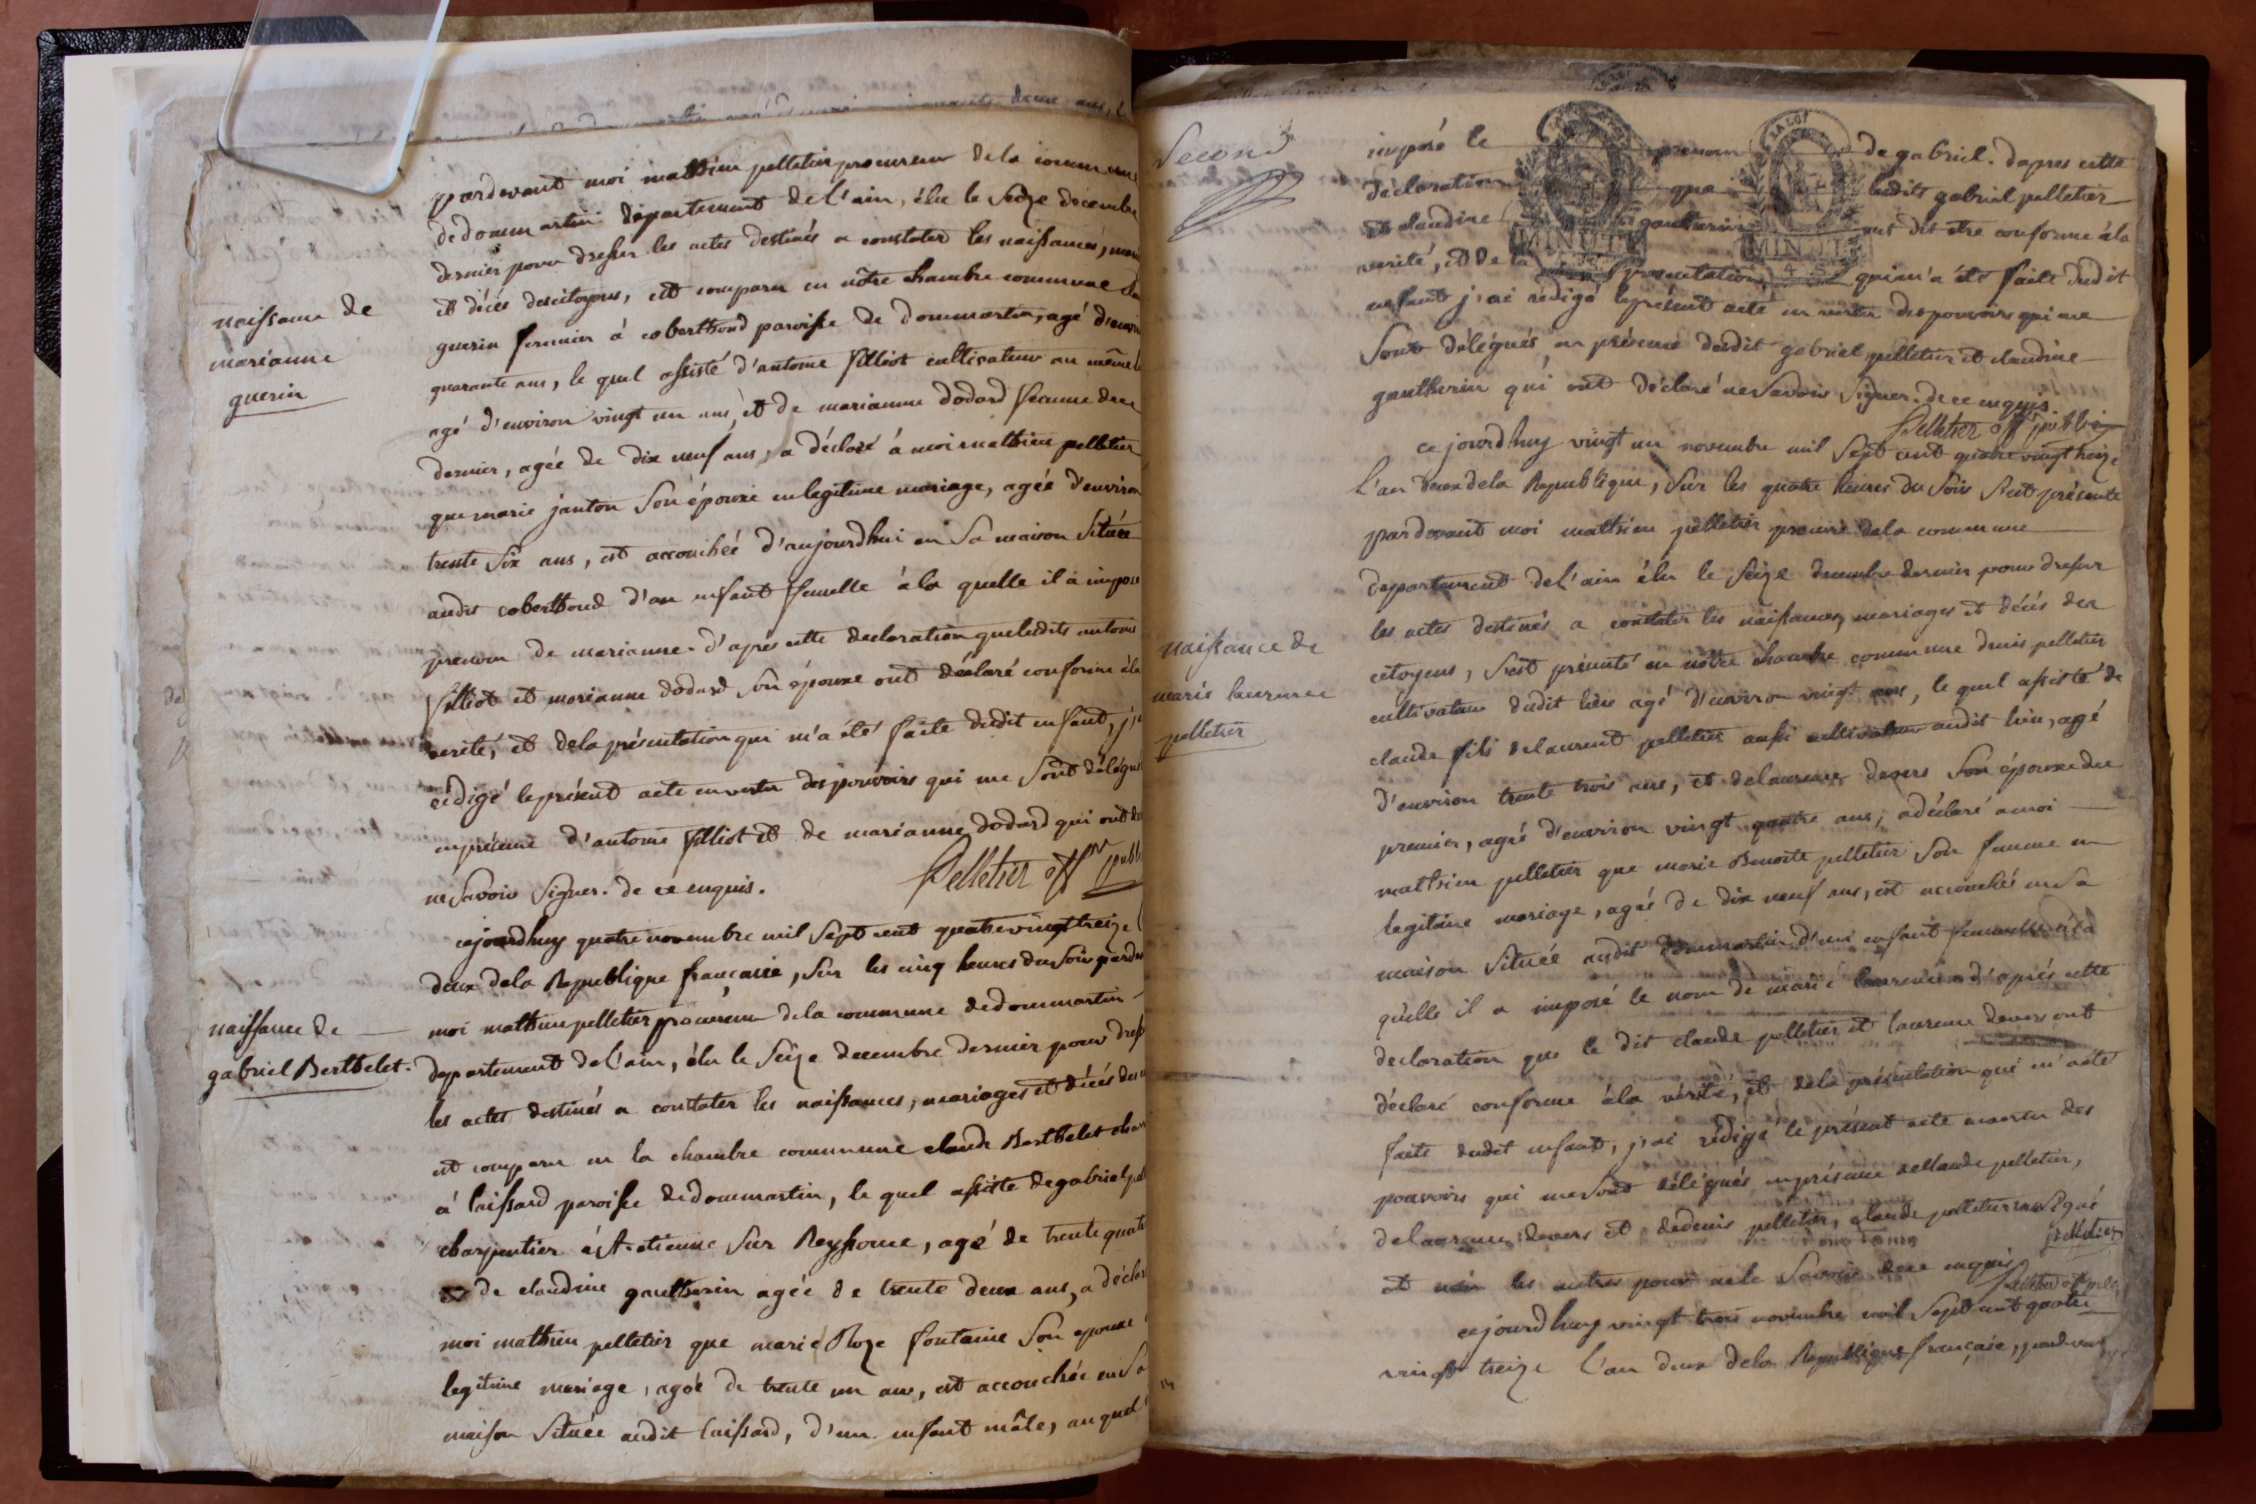 pardevant moi mathieu pelletier procureur dela commune
dedommartin département de l'ain, élu le seize decembre
dernier pour dresser les actes destinés a constater les naissances,
et décés descitoyens, est comparu en nôtre chambre commune
naissance de
marianne
guerin
guerin fermier à coberthoud paroisse de dommartin, agé d'environ
quarante ans, le quel assisté d'antoine filliot cultivateur au même
agé d'environ vingt un ans, et de marianne dodard femme dece
dernier, agée de dix neuf ans, a déclaré à moi mathieu pelletier
que marie janton son épouse en legitime mariage, agée d'environ
trente six ans, est accouchée d'aujourdhui en sa maison située
audit coberthoud d'un enfant femelle à la quelle il a imposé
prenom de marianne. d'aprés cette declaration queledits antoine
filliot et marianne dodard son épouse ont déclaré conforme àla
verité, et dela présentation qui m'a été faite dudit enfant, j'ai
rédigé leprésent acte envertu des pouvoirs qui me sont délégués
enprésence d'antoine filliot et de marianne dodard qui ont
ne savoir signer. de ce enquis.
Pelletier offr publi
cejourdhuy quatre novembre mil sept cent quatrevingttreize l
deux dela Republique française, sur les cinq heures du soir
naissance de
gabriel Berthelet.
moi mathieu pelletier procureur dela commune dedommartin
département de l'ain, élu le seize decembre dernier pour
les actes destinés a constater les naissances, mariages et décés des
est comparu en la chambre commune claude Berthelet
à laissard paroisse dedommartin, le quel assisté degabriel
charpentier à st etienne sur Reyssouze, agé de trente quatre
de claudine gautherin agée de trente deux ans, a déclaré
moi mathieu pelletier que marie Roze fontaine son epouse
legitime mariage, agée de trente un ans, est accouchée en sa
maison située audit laissard, d'un enfant mâle, auquel
Second
imposé le prenom de gabriel. dapres cette
déclaration que ledits gabriel pelletier
et claudine gautherin ont dit etre conforme àla
MINUTE
MINUTE
verité, et de la presentation qui m'a été faite dudit
enfant j'ai rédigé leprésent acte en vertu des pouvoirs qui me
sont délégués, en présence dudit gabriel pelletier et claudine
gautherin qui ont déclaré ne savoir signer. de ce enquis.
Pelletier offr publi
ce jourdhuy vingt un novembre mil sept cent quatre vingt treize
l'an deux dela Republique, sur les quatre heures du soir s'est présenté
pardevant moi mathieu pelletier procure dela commune
département de l'ain élu le seize decembre dernier pour dresser
les actes destinés a constater les naissances, mariages et décés des
naissance de
marie laurence
pelletier
citoyens, s'est présenté en nôtre chambre commune denis pelletier
cultivateur dudit lieu agé d'environ vingt ans, le quel assisté de
claude fils delaurent pelletier aussi cultivateur audit lieu, agé
d'environ trente trois ans, et delaurence devers son épouse du
premier, agée d'environ vingt quatre ans, a déclaré a moi
mathieu pelletier que marie Benoite pelletier son femme en
legitime mariage, agée de dix neuf ans, est accouchée en sa
maison située audit dommartin d'un enfant femmelle à la
quelle il a imposé le nom de marie laurence. d'aprés cette
declaration que le dit claude pelletier et laurence devers ont
déclaré conforme àla vérité, et dela présentation qui m'a été
faite dudit enfant, j'ai rédigé le présent acte en vertu des
pouvoirs qui me sont délégués, en présence de claude pelletier,
delaurence devers et dedenis pelletier, claude pelletier a signé
et non les autres pour ne le savoir de ce enquis
pelletier
Pelletier offr publi
cejourdhuy vingt trois novembre mil sept cent quatre
vingt treize l'an deux dela Republique française, pardevant